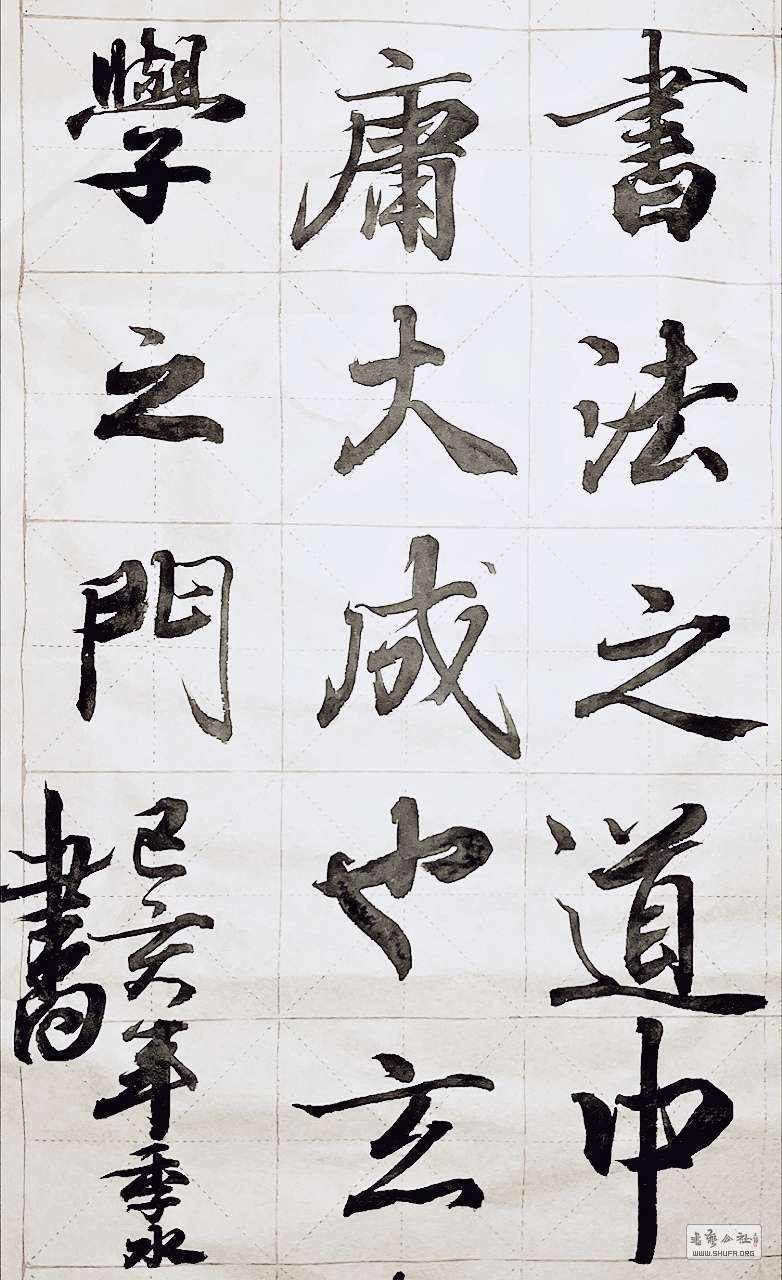 書法之道中
庸大成也玄
學之門
己亥年季水
書
書藝公社
WWW.SHUFA.ORG